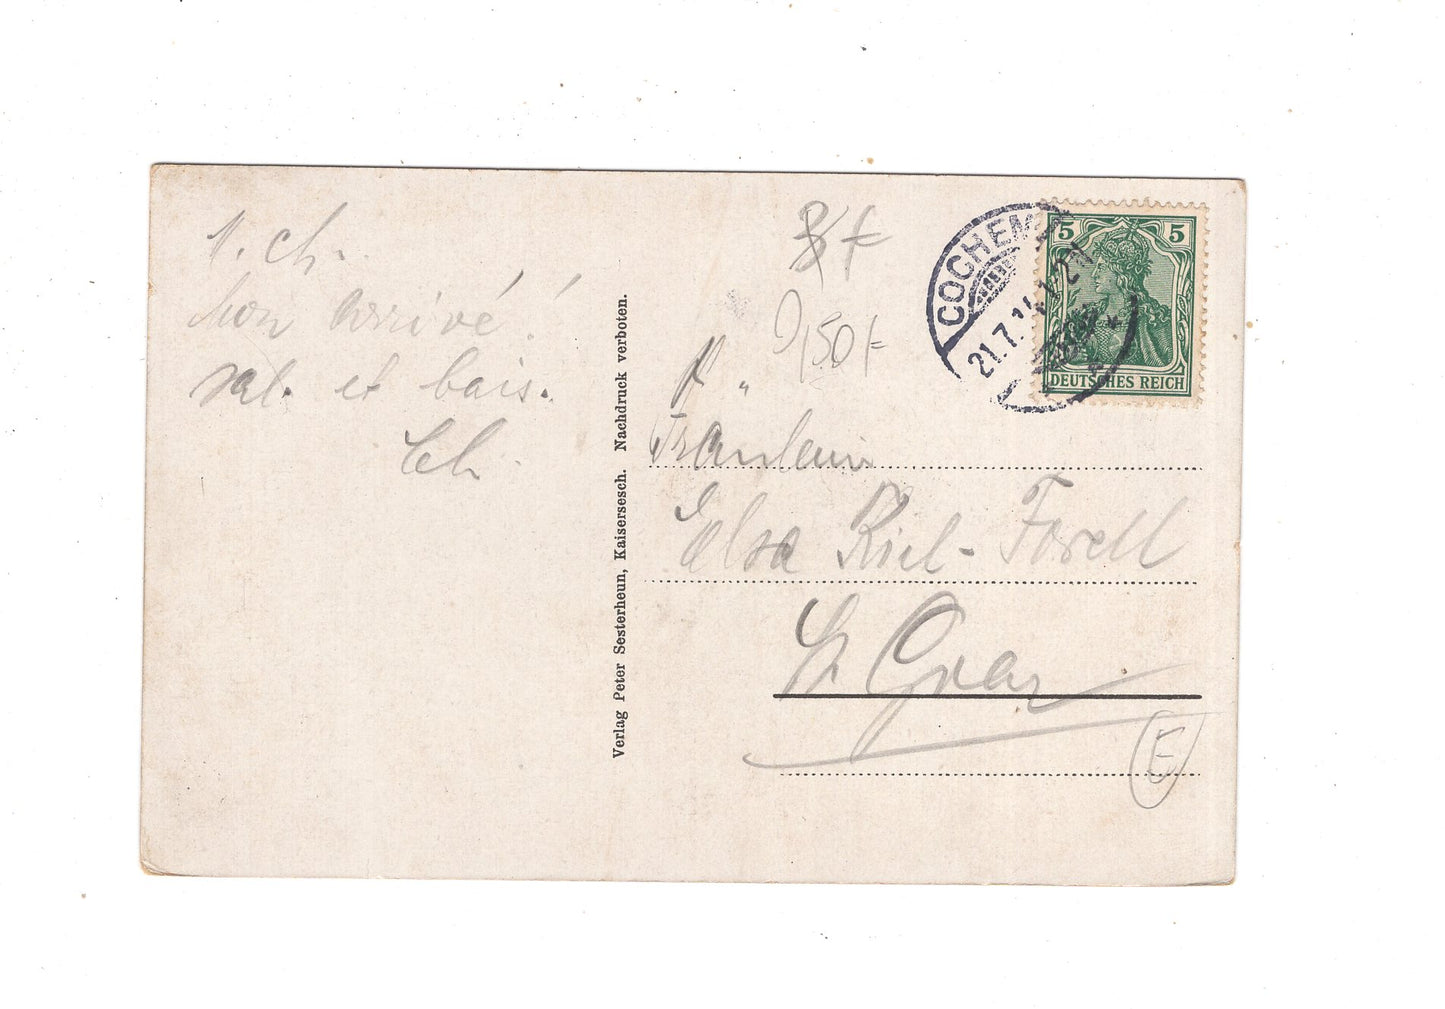 1. ch.
bon arrivé!
sal. et bais.
Ch.
Verlag Peter Sesterheun, Kaisersesch. Nachdruck verboten.
COCHEM
21.7.14.1-2N
5 5
DEUTSCHES REICH
Fräulein
Elsa Kiel-Forell
St Goar
E